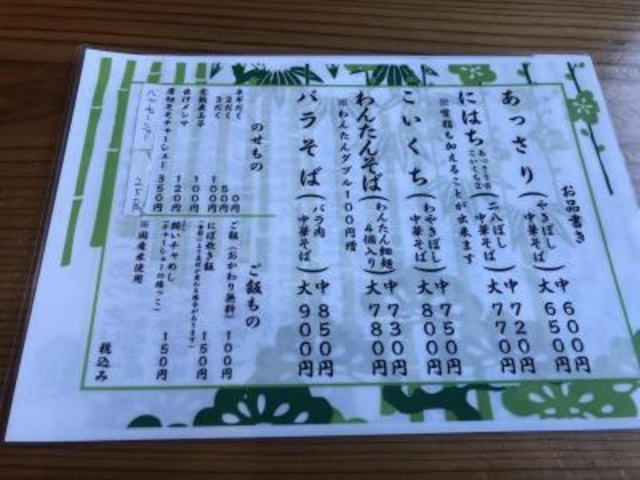 お品書き
あっさり（やきぼし中華そば）中 600円
大 650円
にはち あっさり8こいくち2（二八ぼし中華そば）中 720円
大 770円
※背脂も加えることが出来ます
こいくち（わやきぼし中華そば）中 750円
大 800円
わんたんそば（わんたん細麺4個入り）中 730円
大 780円
※わんたんダブル100円増
バラそば（バラ肉中華そば）中 850円
大 900円
のせもの
ネギだく 0円
2だく 50円
3だく 100円
100円
味付メンマ 120円
厚切モモチャーシュー 350円
250円
ご飯もの
ご飯（おかわり無料）100円
にぼ炊き飯 150円
賄いチャめし 150円
（チャーシューの端っこ）
※国産米使用
税込み